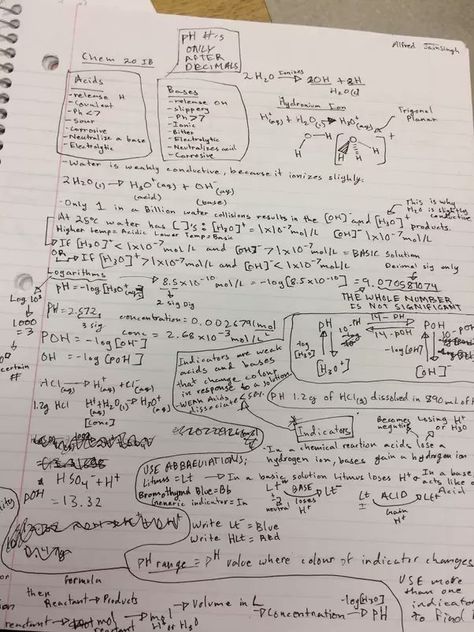 Alfred Jainsingh
Chem 20 IB
PH #'s
ONLY
AFTER
DECIMALS
2H₂O Ionizes → 2OH + 2H
H₂O(l)
Acids
- release H
- Covalent
- Ph <7
- Sour
- Corrosive
- Neutralize a base
- Electrolytic
Bases
- release OH
- slippery
- Ph >7
- Ionic
- Bitter
- Electrolytic
- Neutralizes acid
- Corrosive
Hydronium Ion
H⁺(aq) + H₂O(l) → H₃O⁺(aq)
Trigonal
Planar
- Water is weakly conductive, because it ionizes slighly.
2H₂O(l) → H₃O⁺(aq) + OH⁻(aq)
(acid) (base)
This is why
H₂O is slightly
conductive
- Only 1 in a Billion water collisions results in the [OH]⁻ and [H₃O]⁺ products.
At 25°C water has [ ]'s: [H₃O]⁺ = 1x10⁻⁷ mol/L [OH]⁻ 1x10⁻⁷ mol/L
Higher temps Acidic Lower Temps Basic
If [H₃O]⁺ < 1x10⁻⁷ mol/L and [OH]⁻ > 1x10⁻⁷ mol/L = BASIC solution
OR If [H₃O]⁺ > 1x10⁻⁷ mol/L and [OH]⁻ < 1x10⁻⁷ mol/L
Logarithms
Decimal sig only
PH = -log[H₃O⁺(aq)] → 8.5x10⁻¹⁰ mol/L → -log[8.5x10⁻¹⁰] = 9.070581074
2 sig dig
THE WHOLE NUMBER
IS NOT SIGNIFICANT
1000
= 3
PH = 2.572
3 sig
concentration = 0.002679 mol/L
conc = 2.68 x 10⁻³ mol/L
POH = -log[OH⁻]
OH = -log[POH]
PH 14-PH POH
14-POH
-log[H₃O⁺]
-log[OH⁻]
[H₃O⁺] [OH⁻]
Indicators are weak
acids and bases
that change colour
in response to a solution.
WEAK Acids
dissociate <50%.
HCl(aq) → H⁺(aq) + Cl⁻(aq)
1.2g HCl H⁺ + H₂O → H₃O⁺
[conc]
PH 1.2g of HCl(g) dissolved in 890 mL of
Indicators
Becomes
negative
Losing H⁺
or H₃O
- In a chemical reaction acids lose a
hydrogen ion, bases gain a hydrogen ion
HSO₄⁻ + H⁺
POH = 13.32
USE ABBREVIATIONS:
Litmus = Lt
Bromothymol Blue = Bb
Generic indicator = In
- In a basic solution litmus loses H⁺
In a base
acts like a
Acid
Lt BASE → Lt⁻
neutral loses
H⁺
Lt ACID → Lt⁺
gain
H⁺
Write Lt⁻ = Blue
Write HLt = Red
PH range = PH value where colour of indicator changes
USE more
than one
indicator
to find
formula
then
Reactant → Products
Volume in L
Concentration -log[H₃O] → PH
H⁺ or H₃O